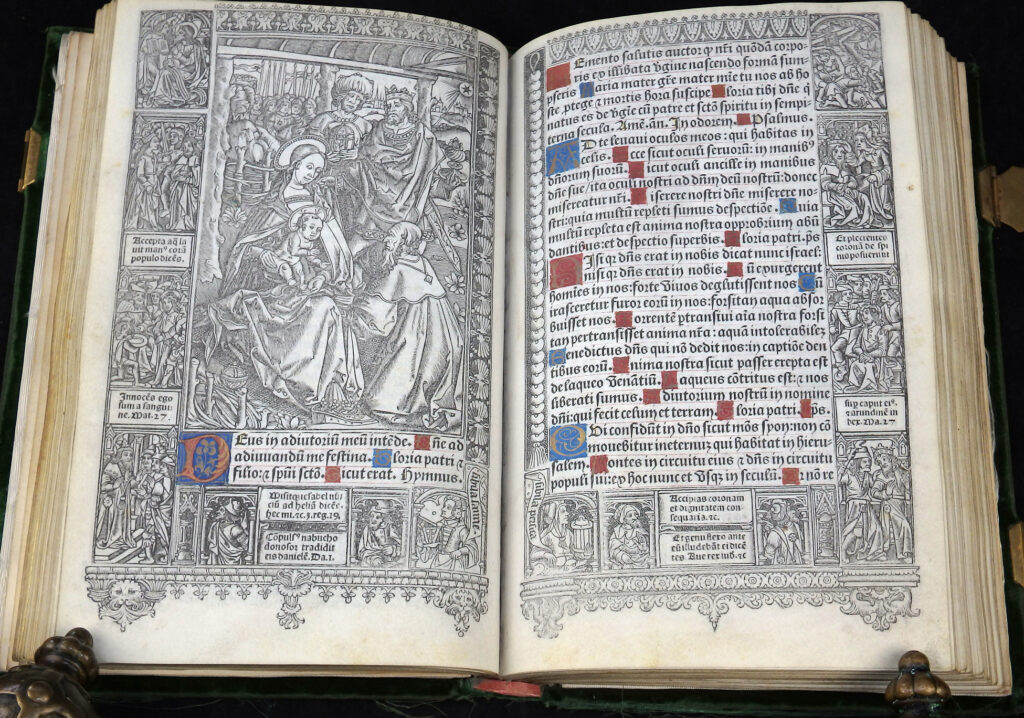 Accepta aq̃ la
uit manꝰ corã
populo dicẽs.
Innocẽs ego
sum a sangui
ne. Mat. 27.
Deus in adiutoriũ meũ intẽde. Dñe ad
adiuuandũ me festina. Gloria patri ⁊
filio: ⁊ spũi sctõ. Sicut erat. Hymnus.
Misitque isabel nũ
ciũ ad heliã dicẽs:
hec mi. ⁊c. 3. reg. 19.
Cõpulsꝰ nabucho
donosor tradidit
eis danielẽ. Da. 1.
Memento salutis auctor: ꝙ nr̃i quõdã corpo-
ris ex illibata v̾gine nascendo formã sum-
pseris Maria mater gr̃e mater mĩe tu nos ab ho
ste ,ptege ⁊ mortis hora suscipe Gloria tibi dñe ꝗ
natus es de v̾gĩe cũ patre et sctõ spiritu in sempi
terna secula. Amẽ. añ. In odorem. Psalmus.
Ad te leuaui oculos meos: qui habitas in
celis. Ecce sicut oculi seruorũ: in manibꝰ
dñorum suorũ. Sicut oculi ancille in manibus
dñe sue / ita oculi nostri ad dñm deũ nostrum: donec
misereatur nr̃i. Miserere nostri dñe miserere no-
stri: quia multũ repleti sumus despectiõe. Quia
multũ repleta est anima nostra opprobrium abũ
dantibus: et despectio superbis. Gloria patri. p̃s
Nisi qꝛ dñs erat in nobis dicat nunc israel:
nisi qꝛ dñs erat in nobis. Cũ exurgerent
homĩes in nos: forte viuos deglutissent nos Cũ
irasceretur furor eorũ in nos: forsitan aqua absor
buisset nos. Torrentẽ ꝑtransiui aĩa nostra forsi
tan pertransisset anima nr̃a: aquã intolerabilem
Benedictus dñs qui nõ dedit nos: in captiõe den
tibus eorũ. Anima nostra sicut passer erepta est
de laqueo venãtiũ. Laqueus cõtritus est: ⁊ nos
liberati sumus. Adiutorium nostrũ in nomine
dñi: qui fecit celum et terram. Gloria patri. Ps.
Qui confidunt in dño sicut mõs syon: non cõ
mouebitur ineternũ: qui habitat in hieru-
salem. Montes in circuitu eius ⁊ dñs in circuitu
populi sui: ex hoc nunc et vsqꝫ in seculũ. Qr nõ re
Et plectentes
coronã de spi
nis posuerunt
sup caput eiꝰ.
⁊ arundinẽ in
dex. Ma. 27
Accipias coronam
et dignitatem con-
sequaris. ⁊c.
Et genuflexo ante
eũ illudebãt ei dicẽ
tes Aue rex iud. ⁊c